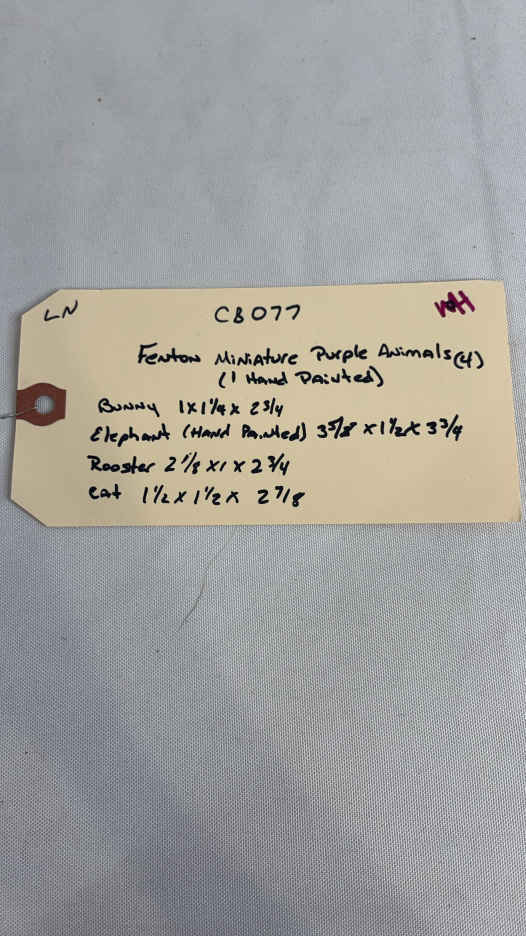 LN
CB077
Fenton Miniature Purple Animals (4)
(1 Hand Painted)
Bunny 1x1 1/4 x 2 3/4
Elephant (Hand Painted) 3 5/8 x 1 1/2 x 3 3/4
Rooster 2 1/8 x 1 x 2 3/4
cat 1 1/2 x 1 1/2 x 2 7/8